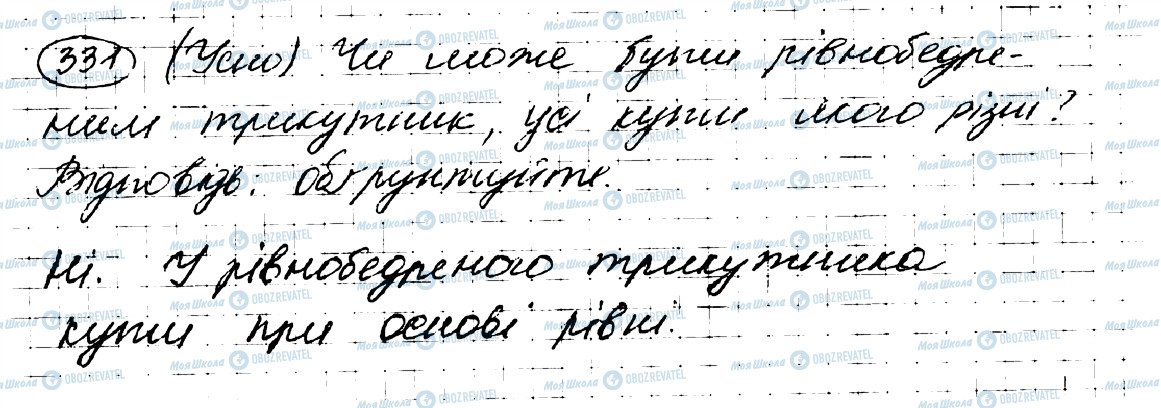 331 (Усно) Чи може бути рівнобедре-
ним трикутник, усі кути якого різні?
Відповідь: обґрунтуйте.
Ні. У рівнобедреного трикутника
кути при основі рівні.